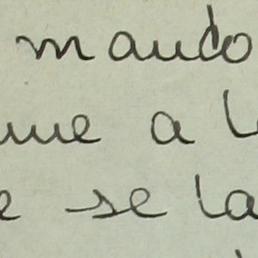 mando
me a l
e se la